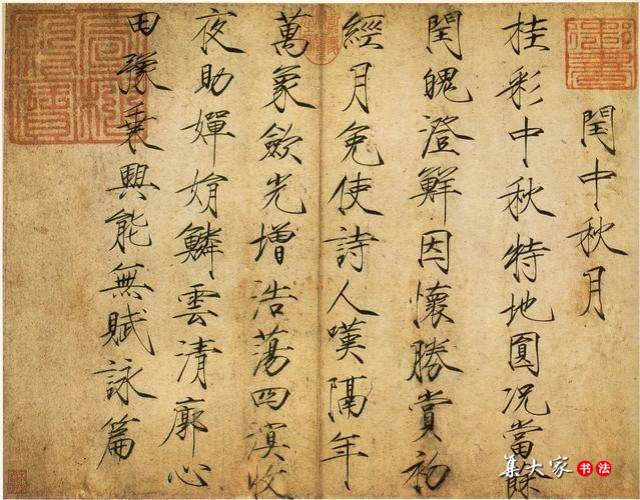 閏中秋月
桂彩中秋特地圓况當餘
閏魄澄鮮因懷勝賞初
經月免使詩人嘆隔年
萬象歛光增浩蕩四溟收
夜助嬋娟鱗雲清廓心
田豫乗興能無賦詠篇
集大家书法